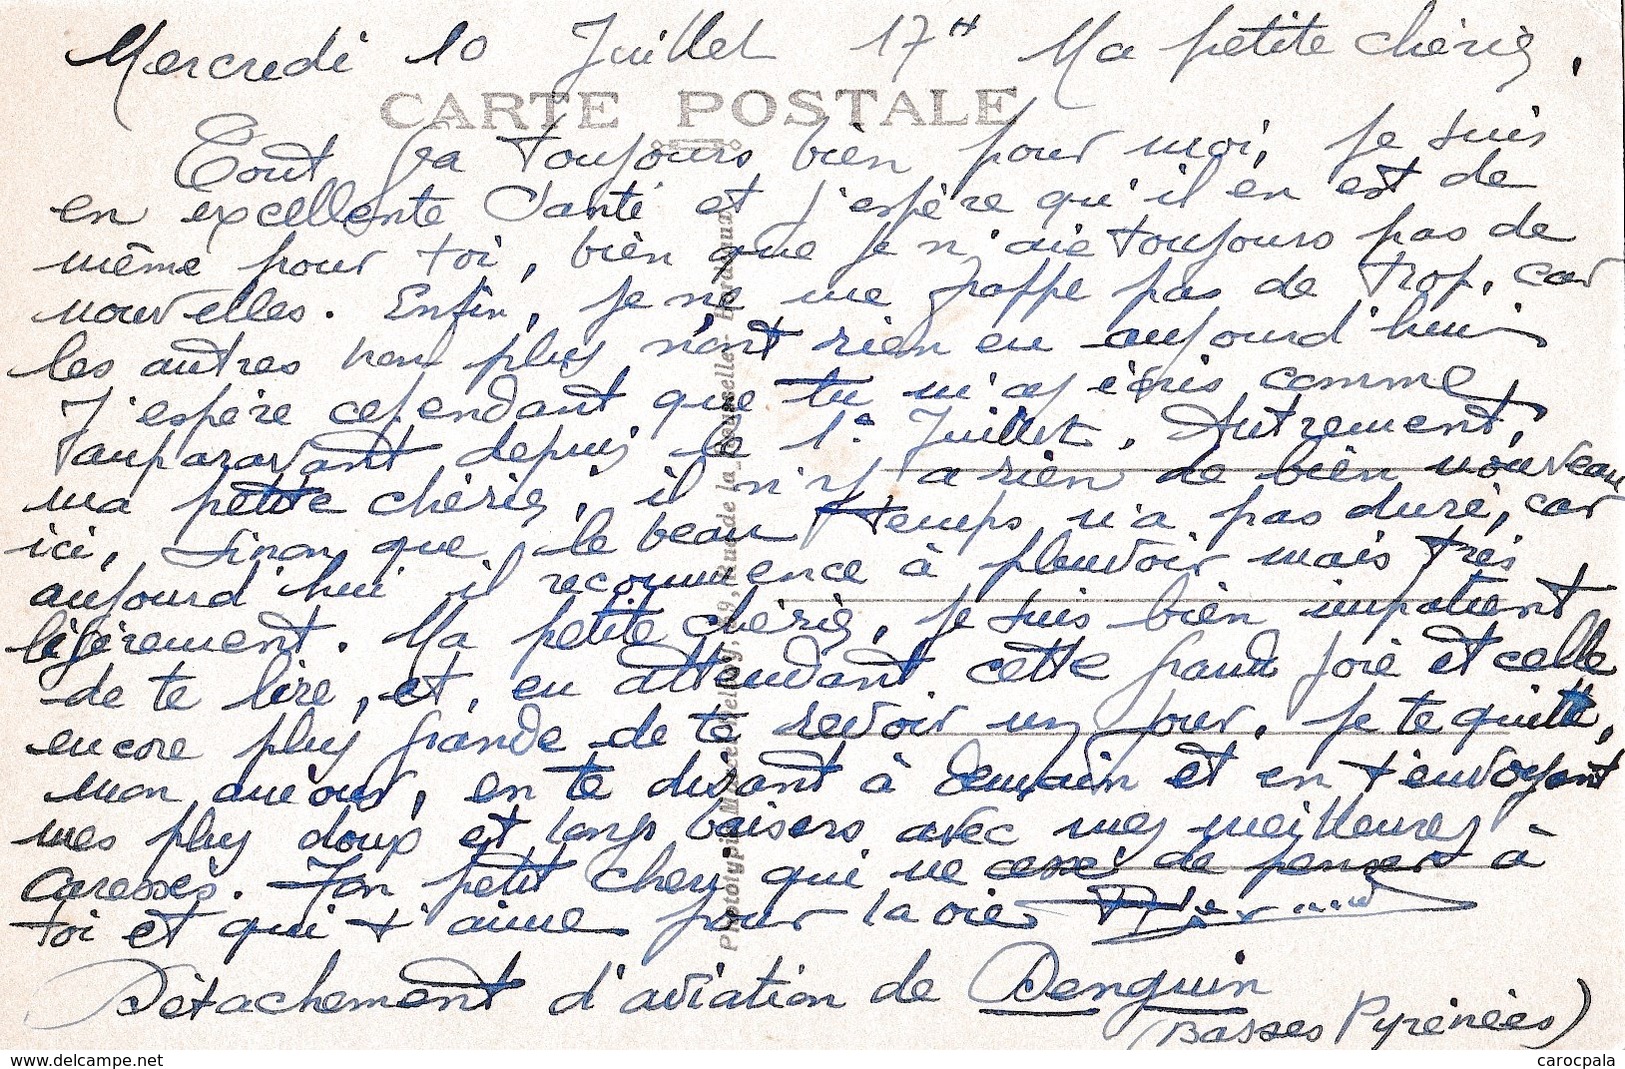 Mercredi 10 Juillet 17H Ma petite chérie,
CARTE POSTALE
Tout va toujours bien pour moi, je suis
en excellente santé et j'espère qu'il en est de
même pour toi, bien que je n'aie toujours pas de
nouvelles. Enfin, je ne me frappe pas de trop, car
les autres non plus n'ont rien eu aujourd'hui
J'espère cependant que tu m'as écris comme
auparavant depuis le 1er Juillet. Autrement,
ma petite chérie, il n'y a rien de bien nouveau
ici, sinon que le beau temps n'a pas duré, car
aujourd'hui il recommence à pleuvoir mais très
légèrement. Ma petite chérie, je suis bien impatient
de te lire, et, en attendant cette grand joie et celle
encore plus grande de te revoir un jour, je te quitte,
mon amour, en te disant à demain et en t'envoyant
mes plus doux et longs baisers avec mes meilleures
caresses. Ton petit chery qui ne cesse de penser à
toi et qui t'aime pour la vie
Détachement d'aviation de Denguin
(Basses Pyrénées)
Rue de la
carocpala